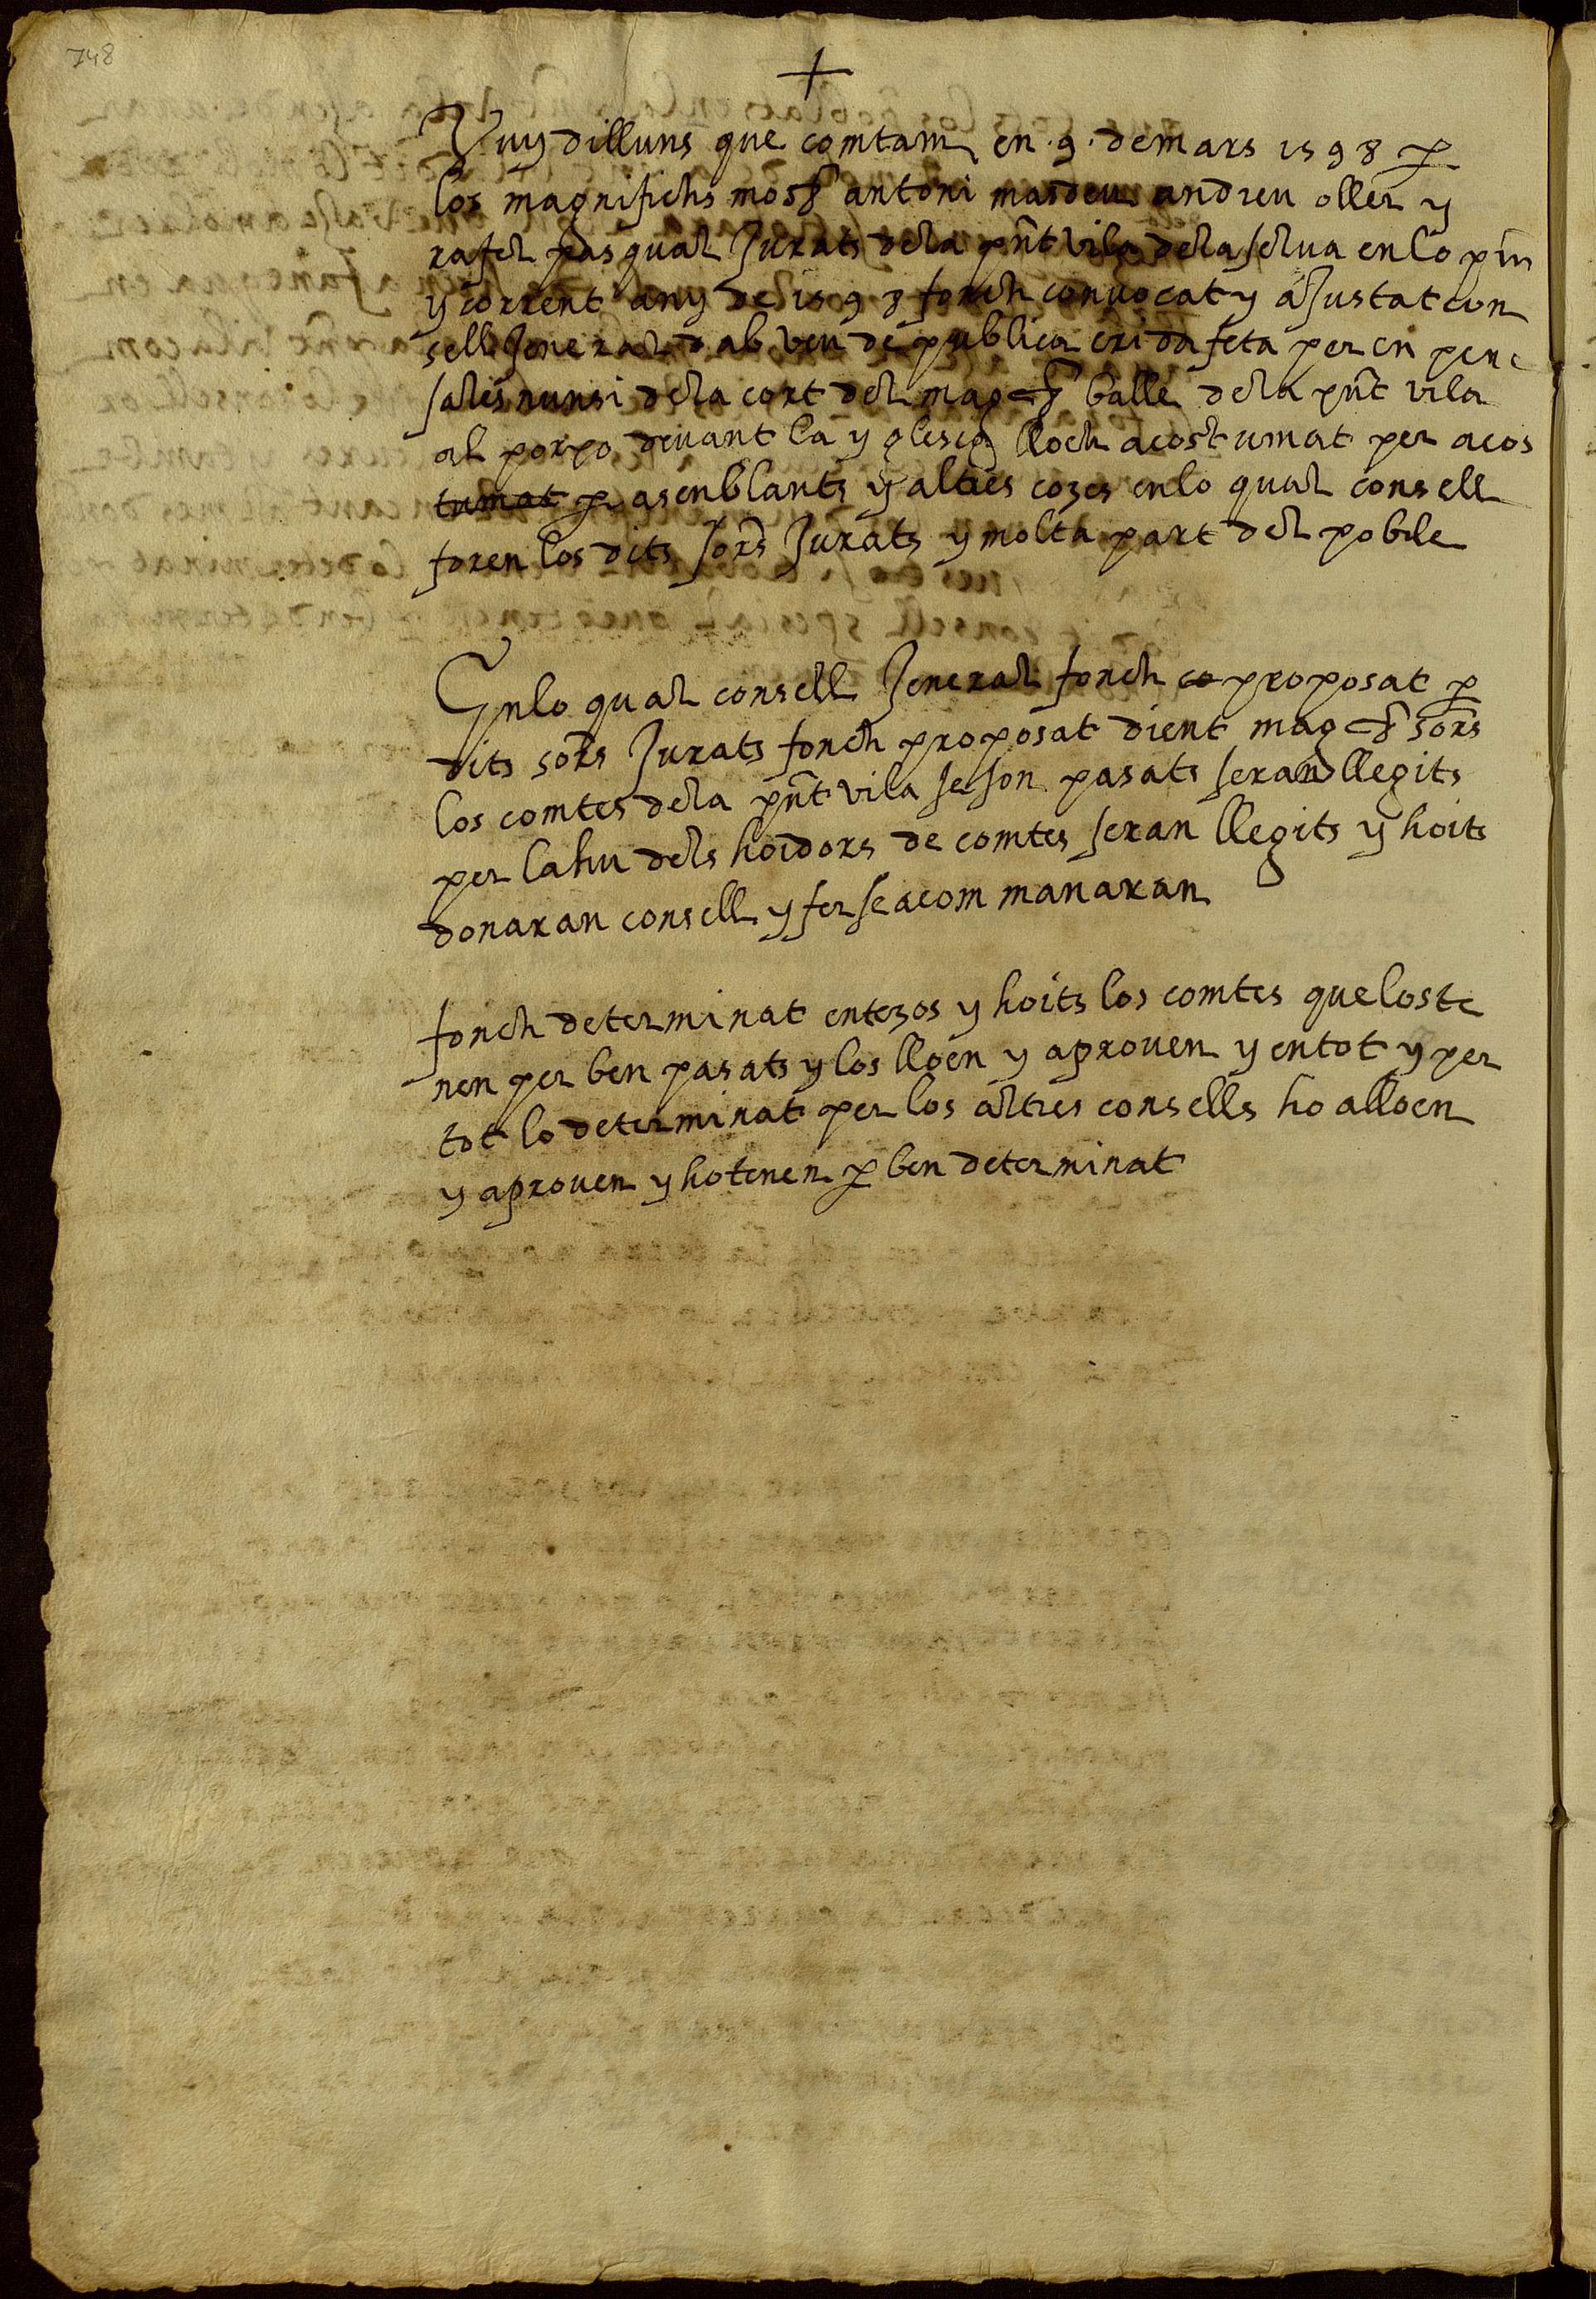 748
+
Vuy dilluns que comtam en .9. de mars 1598 p
los magnifichs mosš antoni masdeu andreu oller y
rafel pasqual Jurats dela pñt vila dela selua en lo pñ
y corrent any de 1598 fonch convocat y aJustat con
sell Jeneral ab veu de publica crida feta per en pere
sales nunsi dela cort del mag&#99;h balle dela pñt vila
al porxo devant la yglesia lloch acostumat per acos
tumat p asenblants y altres cozes en lo qual consell
foren los dits sors Jurats y molta part del poble
En lo qual consell Jeneral fonch co proposat p
dits sors Jurats fonch proposat dient magchs sors
los comtes dela pñt vila se son pasats seran llegits
per la hu dels hoidors de comtes seran llegits y hoits
donaran consell y fer sea com manaran
fonch determinat entezos y hoits los comtes que los te
nen per ben pasats y los lloen y aproven y en tot y per
tot lo determinat per los altres consells ho alloen
y aproven y ho tenen p ben determinat